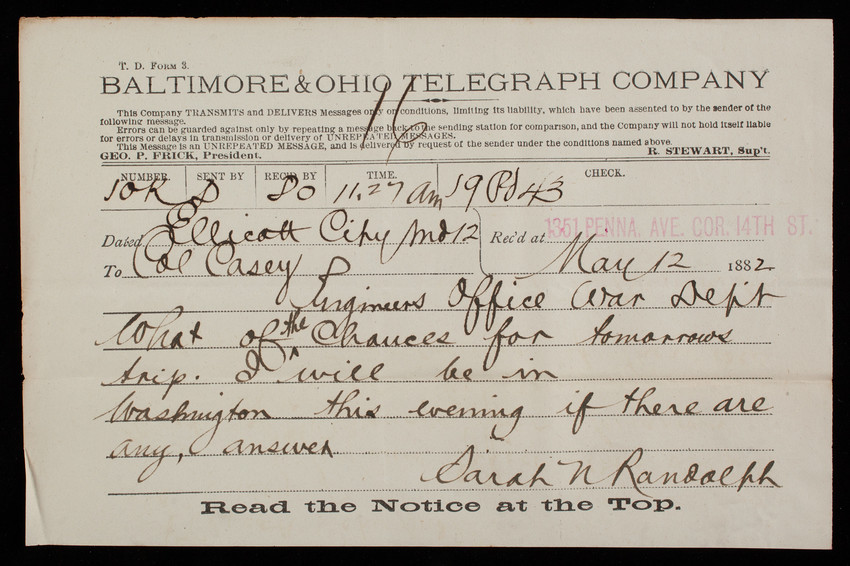 T. D. Form 3.
BALTIMORE & OHIO TELEGRAPH COMPANY
11
This Company TRANSMITS and DELIVERS Messages only on conditions, limiting its liability, which have been assented to by the sender of the
following message.
Errors can be guarded against only by repeating a message back to the sending station for comparison, and the Company will not hold itself liable
for errors or delays in transmission or delivery of UNREPEATED MESSAGES.
This Message is an UNREPEATED MESSAGE, and is delivered by request of the sender under the conditions named above.
GEO. P. FRICK, President. R. STEWART, Sup't.
NUMBER. SENT BY REC'D BY TIME. CHECK.
10K D 11.27 am 19 Pd 43
Dated Ellicott City Md 12 Rec'd at 1351 PENNA. AVE. COR. 14TH ST.
To Col Casey May 12 1882
Engineers Office War Dept
What of the Chances for tomorrows
trip. I will be in
Washington this evening if there are
any, answer
Sarah N Randolph
Read the Notice at the Top.